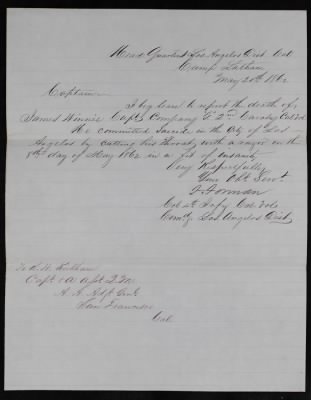 Head Quarters Los Angeles Dist. Cal
Camp Latham
May 20th 1862
Captain
I beg leave to report the death of
James Winnie Capt Company F. 2nd Cavalry Cal Vol.
He committed Suicide in the City of Los
Angeles by cutting his throat, with a razor on the
8th day of May 1862 in a fit of insanity
Very Respectfully
Your Obt. Servt.
F. Forman
Col 4th Infy Cal Vols
Comdg Los Angeles Dist.
To
Capt
San Francisco
Cal